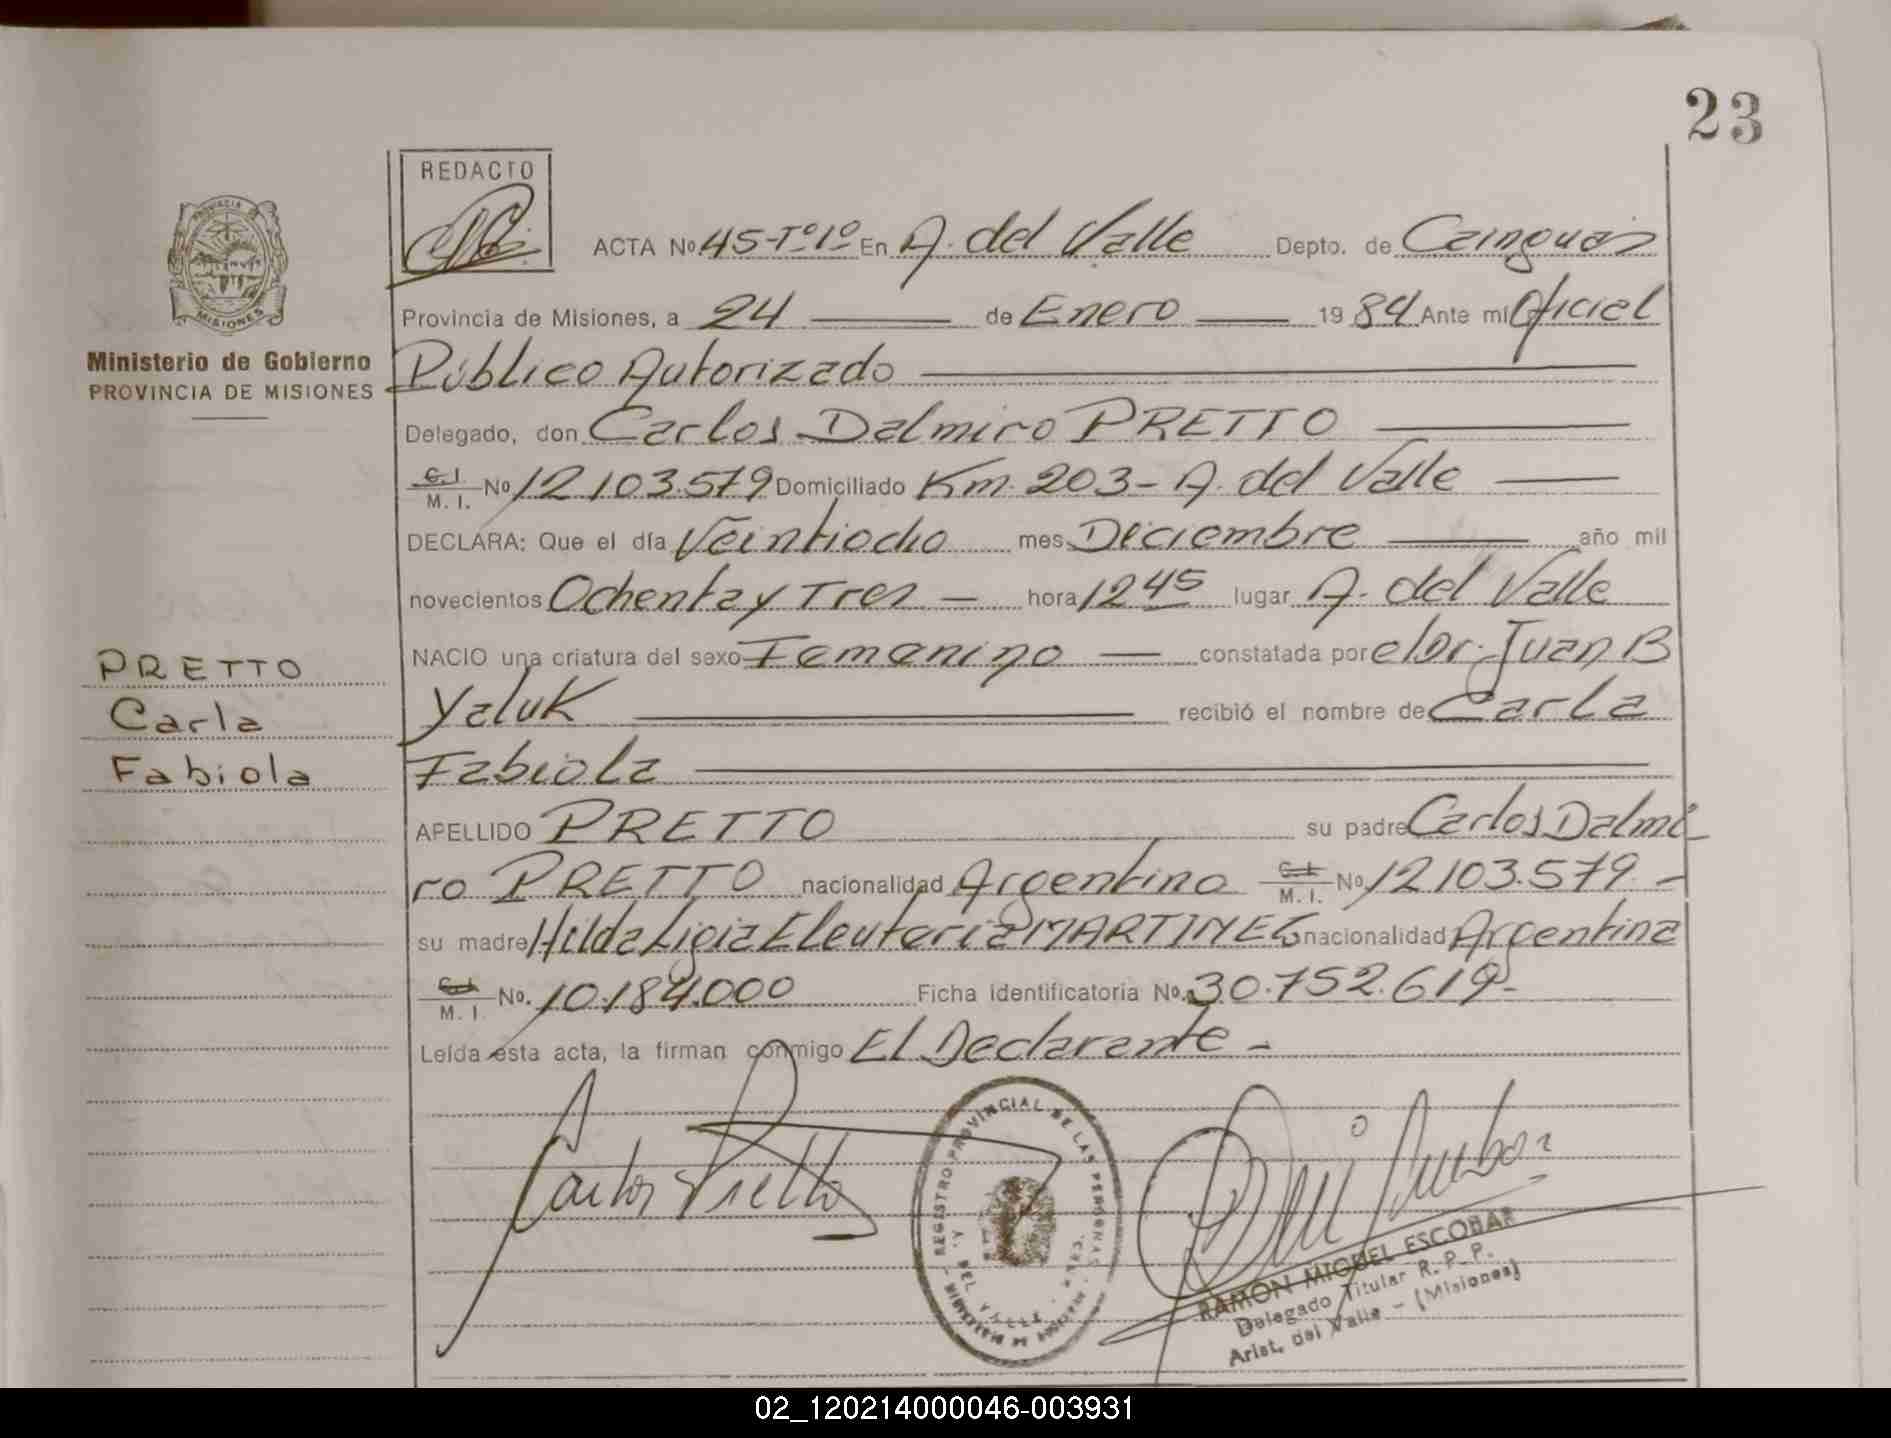 23
REDACTO
PROVINCIA
MISIONES
Ministerio de Gobierno
PROVINCIA DE MISIONES
ACTA Nº 45-Tº1º En A. del Valle Depto. de Cainguas
Provincia de Misiones, a 24 de Enero 1984 Ante mí Oficial
Público Autorizado
Delegado, don Carlos Dalmiro PRETTO
C.I. M.I. Nº 12.103.579 Domiciliado Km. 203 - A. del Valle
DECLARA: Que el día Veintiocho mes Diciembre año mil
novecientos Ochenta y Tres - hora 12 45 lugar A. del Valle
NACIO una criatura del sexo Femenino constatada por el Dr. Juan B
Yaluk recibió el nombre de Carla
Fabiola
APELLIDO PRETTO su padre Carlos Dalmi-
ro PRETTO nacionalidad Argentina C.I. M.I. Nº 12.103.579 -
su madre Hilda Ligia Eleuteria MARTINEZ nacionalidad Argentina
C.I. M.I. Nº. 10.184.000 Ficha identificatoria Nº 30.752.619-
Leída esta acta, la firman conmigo El Declarante -
PRETTO
Carla
Fabiola
Carlos Pretto
REGISTRO PROVINCIAL DE LAS PERSONAS
DEL VALLE
RAMON MIGUEL ESCOBAR
Delegado Titular R. P. P.
Arist. del Valle - (Misiones)
02_120214000046-003931